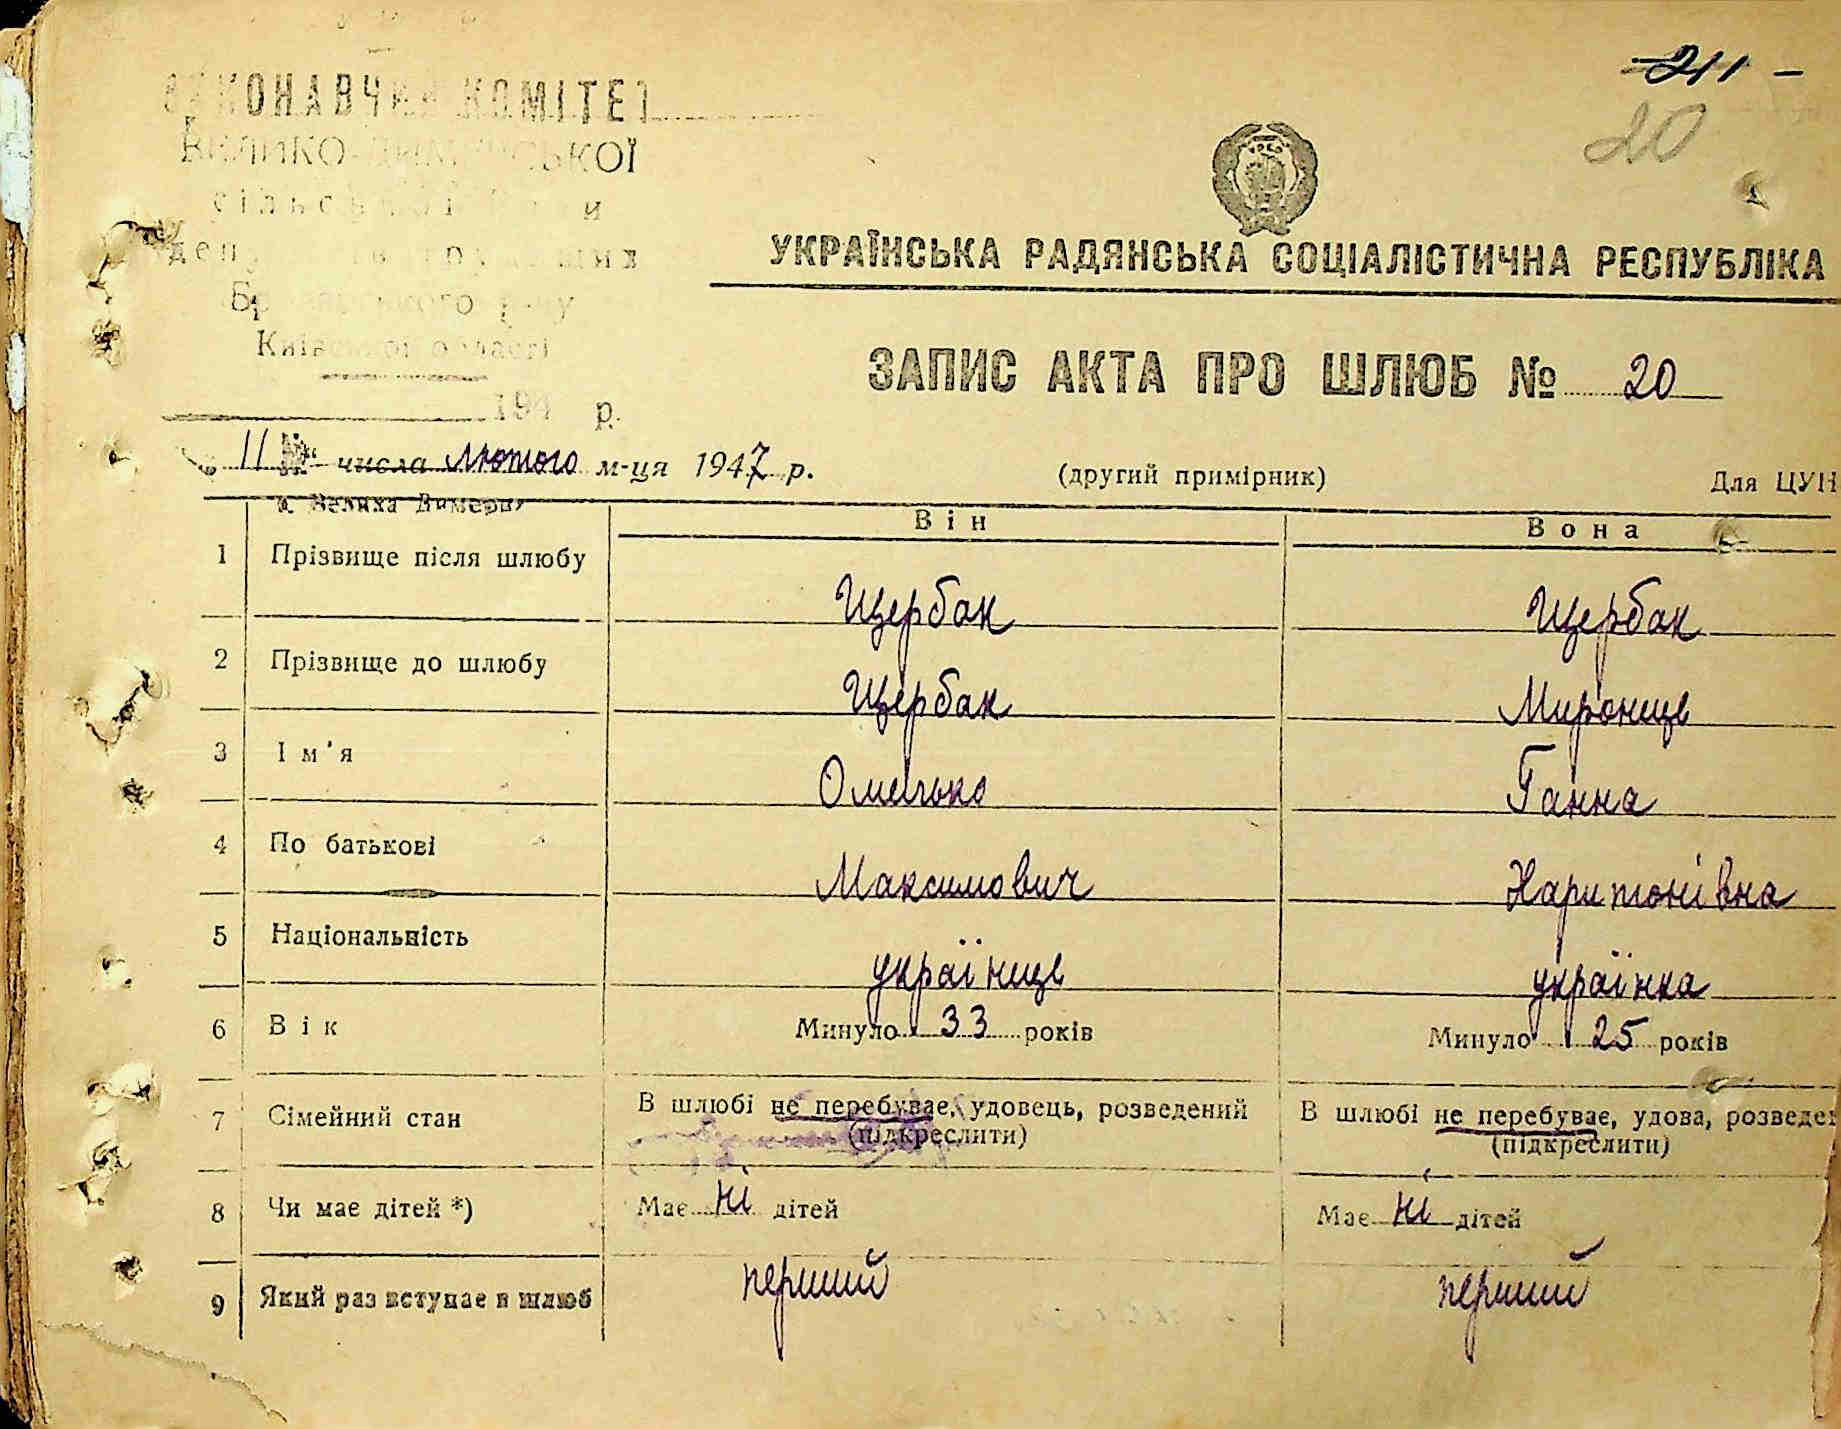 - 211 -
20
ВИКОНАВЧИЙ КОМІТЕТ
ВЕЛИКО-ДИМЕРСЬКОЇ
сільської Ради
депутатів трудящих
Броварського р-ну
Київської області
194 р.
УКРАЇНСЬКА РАДЯНСЬКА СОЦІАЛІСТИЧНА РЕСПУБЛІКА
ЗАПИС АКТА ПРО ШЛЮБ № 20
„11“ числа лютого м-ця 1947 р.
(другий примірник)
Для ЦУН
с. Велика Димерка
Він Вона
1 Прізвище після шлюбу Щербак Щербак
2 Прізвище до шлюбу Щербак Миронець
3 Ім'я Омелько Ганна
4 По батькові Максимович Харитонівна
5 Національність українець українка
6 Вік Минуло 33 років Минуло 25 років
7 Сімейний стан В шлюбі не перебуває, удовець, розведений В шлюбі не перебуває, удова, розведе
(підкреслити) (підкреслити)
8 Чи має дітей *) Має ні дітей Має ні дітей
9 Який раз вступає в шлюб перший перший